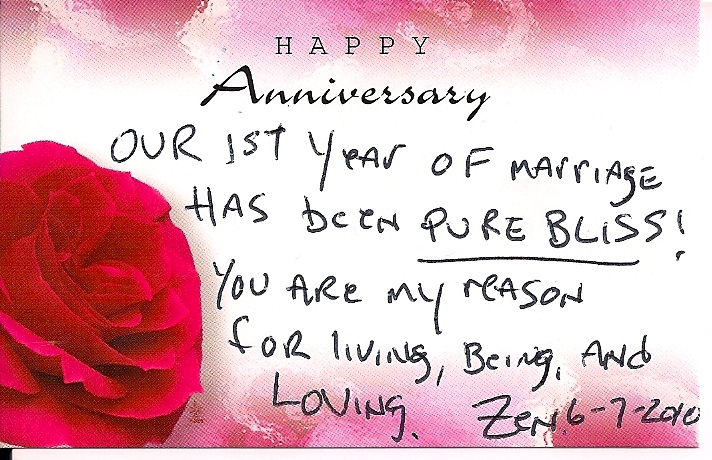 HAPPY
Anniversary
OUR 1ST Year OF MArriAgE
HAS been PURE BLiSS!
YOU ARe my reASON
for living, Being, And
Loving. Zen. 6-7-2010